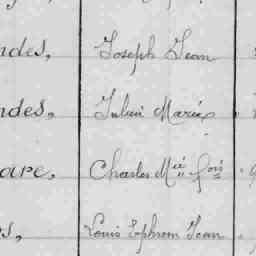 ndes, Joseph Jean
ndes, Julien Marie
are, Charles M.ie fois
es, Louis Ephrem Jean